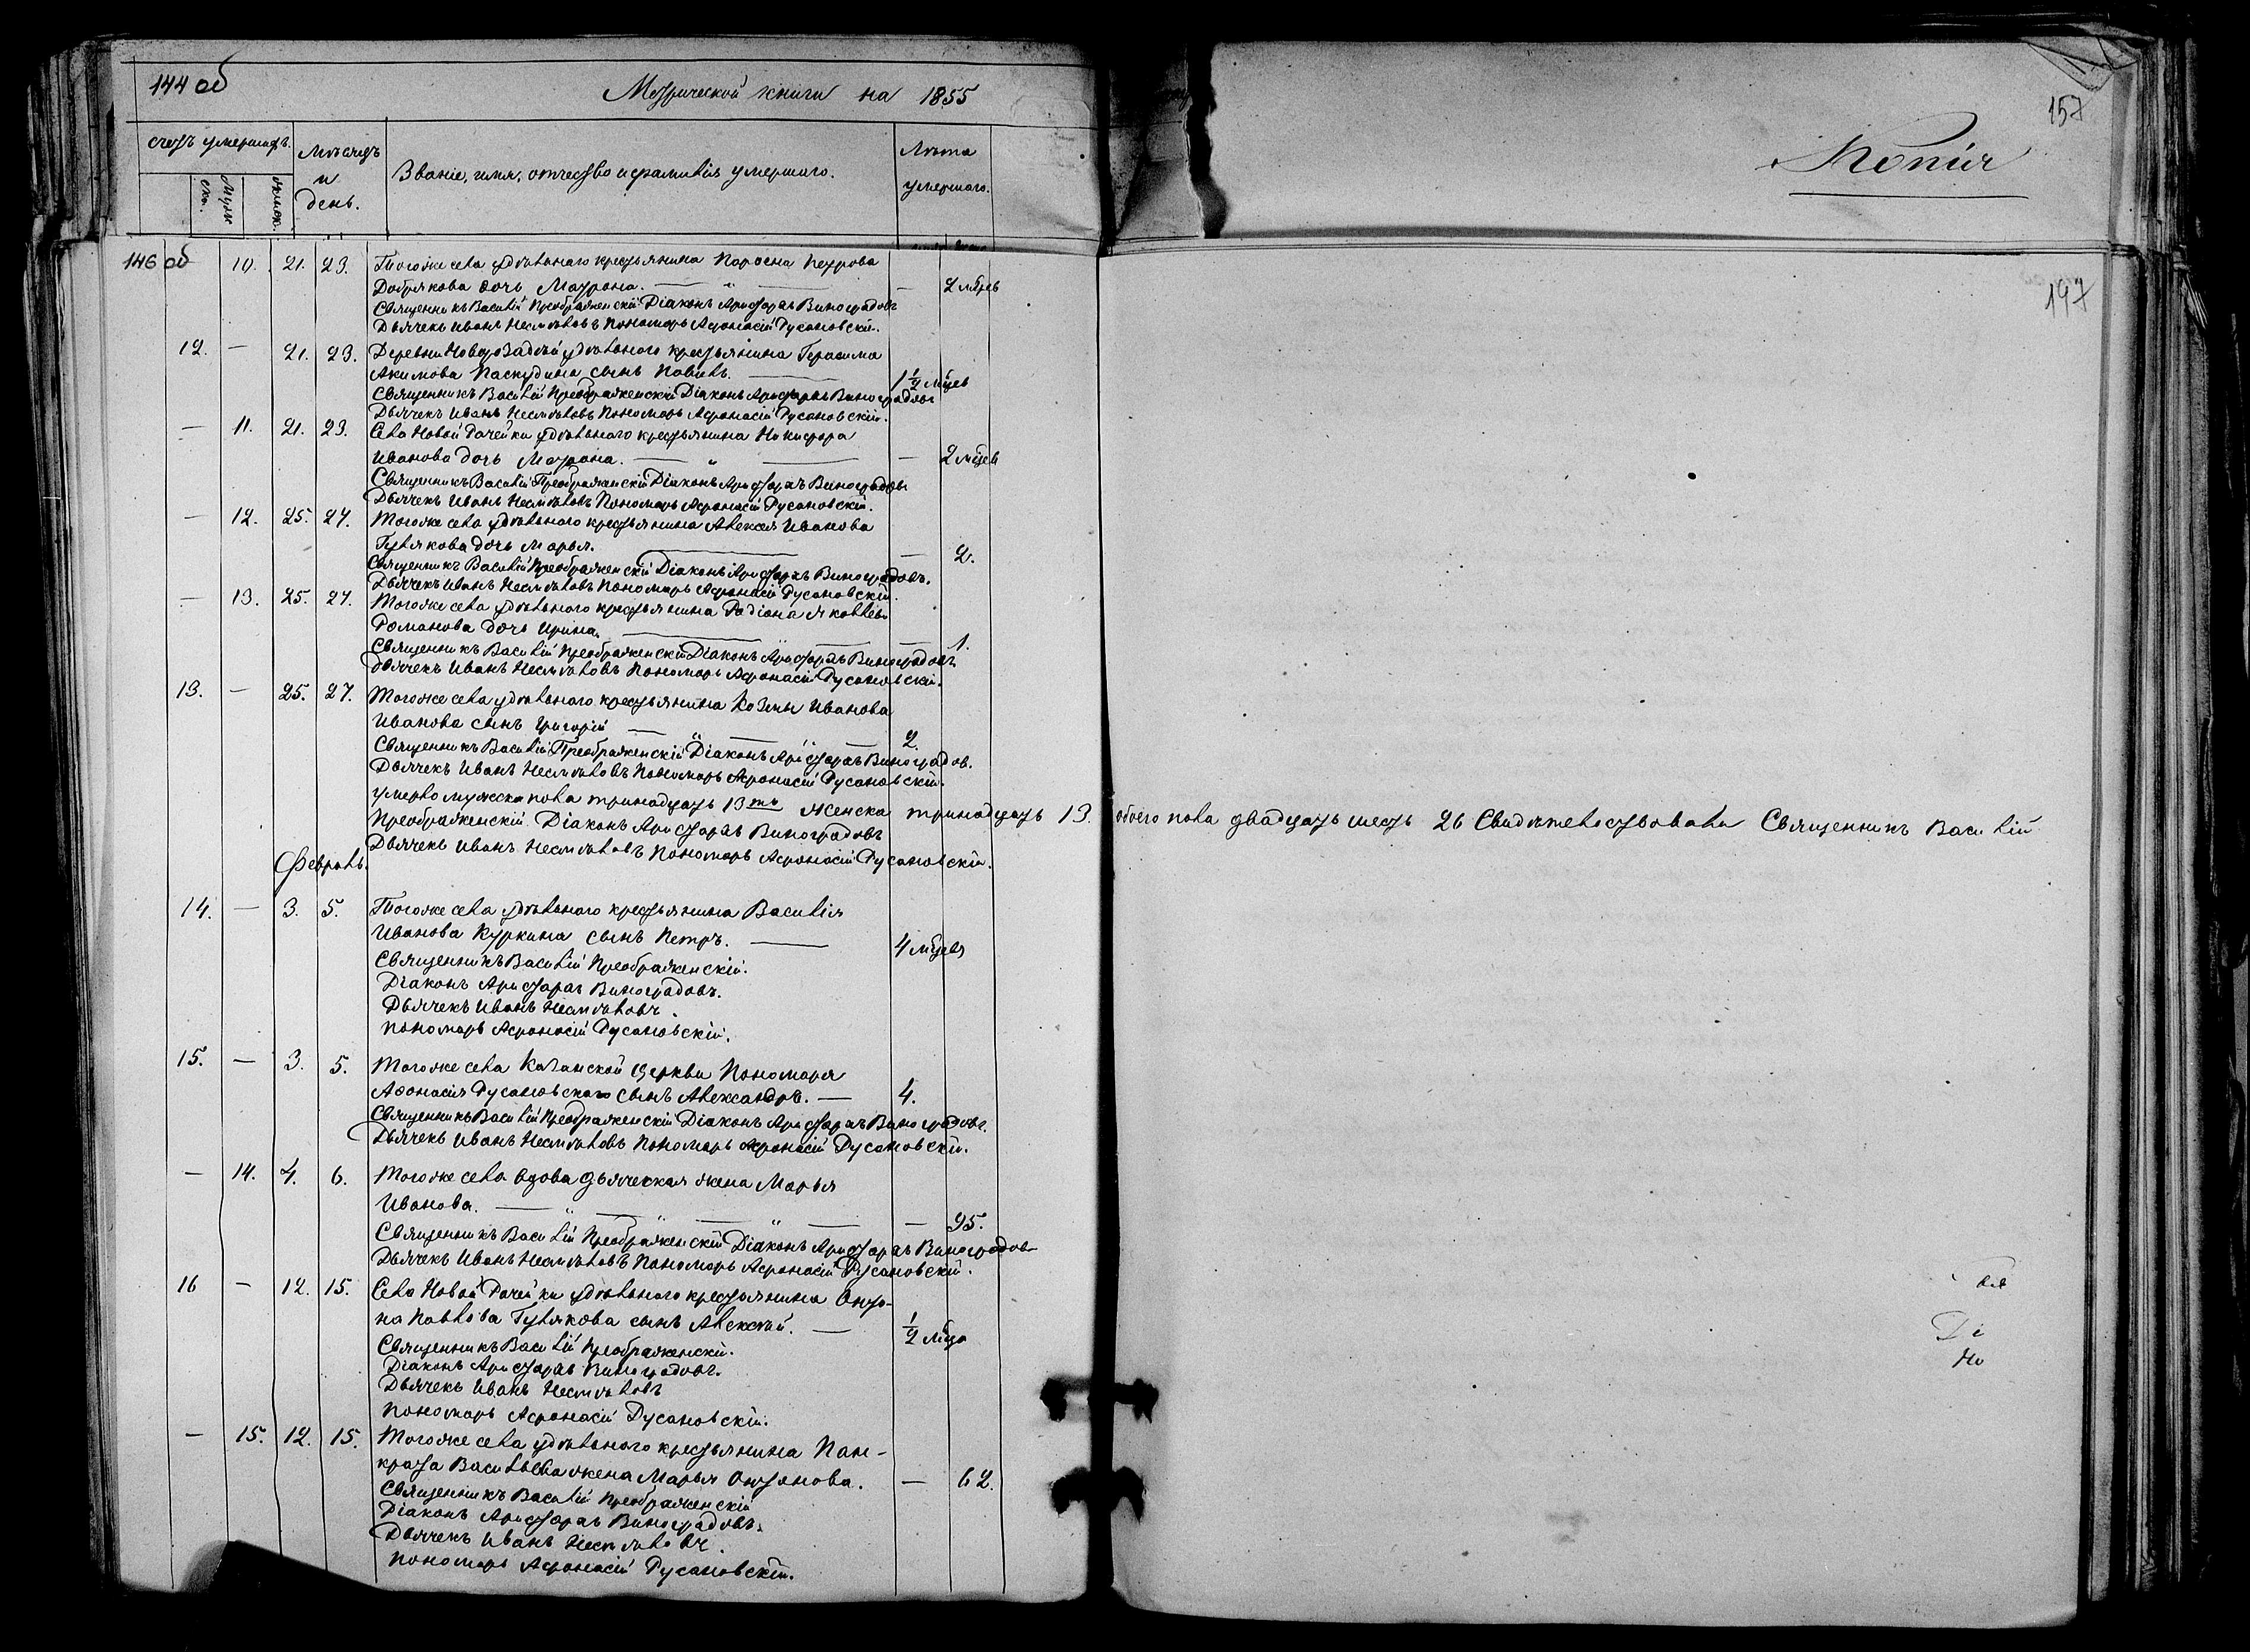 144 об
Метрической книги на 1855
счетъ умершихъ.
Муже ска.
женск.
Мѣсяцъ и день.
Званіе, имя, отчество и фамилія умершаго.
Лѣта умершаго.
146 об
10. 21. 23. Тогоже села удѣльнаго крестьянина
Добрякова дочь Матрона. — 2 мѣсец
Священникъ Василій Преображенскій Діаконъ Аристархъ Виноградовъ
Дьячекъ Иванъ Несмѣловъ Пономарь Афонасій Русановскій.
12. — 21. 23. Деревни удѣльного крестьянина Герасима
Акимова Паскудина сынъ Павилъ. 1 1/2 мѣсец
Священникъ Василій Преображенскій Діаконъ Аристархъ Виноградовъ
Дьячекъ Иванъ Несмѣловъ Пономарь Афонасій Русановскій.
— 11. 21. 23. Села Новой Рачейки удѣльнаго крестьянина Никифора
Иванова дочь Матрона. — 2 мѣсец
Священникъ Василій Преображенскій Діаконъ Аристархъ Виноградовъ
Дьячекъ Иванъ Несмѣловъ Пономарь Афонасій Русановскій.
— 12. 25. 27. Тогоже села удѣльного крестьянина Алексея Иванова
Гулякова дочь Марья. — 2.
Священникъ Василій Преображенскій Діаконъ Аристархъ Виноградовъ.
Дьячекъ Иванъ Несмѣловъ Пономарь Афонасій Русановскій.
— 13. 25. 27. Тогоже села удѣльного крестьянина Радіона Яковлева
Романова дочь Ирина. — 1.
Священникъ Василій Преображенскій Діаконъ Аристархъ Виноградовъ
Дьячекъ Иванъ Несмѣловъ Пономарь Афонасій Русановскій.
13. — 25. 27. Тогоже села удѣльнаго крестьянина Козмы Иванова
Иванова сынъ Григорій — 2.
Священникъ Василій Преображенскій Діаконъ Аристархъ Виноградов.
Дьячекъ Иванъ Несмѣловъ Пономарь Афонасій Русановскій.
умерло мужеска пола тринадцать 13ть женска тринадцать 13. обоего пола двадцать шесть 26 Свидѣтельствовали Священникъ Василій
Преображенскій Діаконъ Аристархъ Виноградовъ
Дьячекъ Иванъ Несмѣловъ Пономарь Афонасій Русановскій.
Февраль.
14. — 3. 5. Тогоже села удѣльнаго крестьянина Василія
Иванова Куркина сынъ Петръ. — 4 мѣсец
Священникъ Василій Преображенскій.
Діаконъ Аристархъ Виноградовъ.
Дьячекъ Иванъ Несмѣловъ.
Пономарь Афонасій Русановскій.
15. — 3. 5. Тогоже села Казанской Церкви Пономаря
Афонасія Русановскаго сынъ Александръ. — 4.
Священникъ Василій Преображенскій Діаконъ Аристархъ Виноградовъ.
Дьячекъ Иванъ Несмѣловъ Пономарь Афонасій Русановскій.
— 14. 4. 6. Тогоже села вдова дьяческая жена Марья
Иванова. — 95.
Священникъ Василій Преображенскій Діаконъ Аристархъ Виноградовъ
Дьячекъ Иванъ Несмѣловъ Пономарь Афонасій Русановскій.
16 — 12. 15. Села Новой Рачейки удѣльнаго крестьянина Онто-
на Павлова Гулякова сынъ Алексѣй. — 1/2 мѣца
Священникъ Василій Преображенскій.
Діаконъ Аристархъ Виноградовъ.
Дьячекъ Иванъ Несмѣловъ
Пономарь Афонасій Русановскій.
— 15. 12. 15. Тогоже села удѣльнаго крестьянина Пан-
крата Васильева жена Марья Онтонова. — 62.
Священникъ Василій Преображенскій
Діаконъ Аристархъ Виноградовъ.
Дьячекъ Иванъ Несмѣловъ.
Пономарь Афонасій Русановскій.
157
Копія
197
Ді